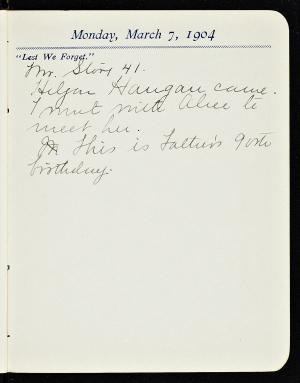 Monday, March 7, 1904
"Lest We Forget."
Mr. Story 41.
Hilgon Haugan came.
I went with Alice to
meet her.
This is Father's 90th
birthday.